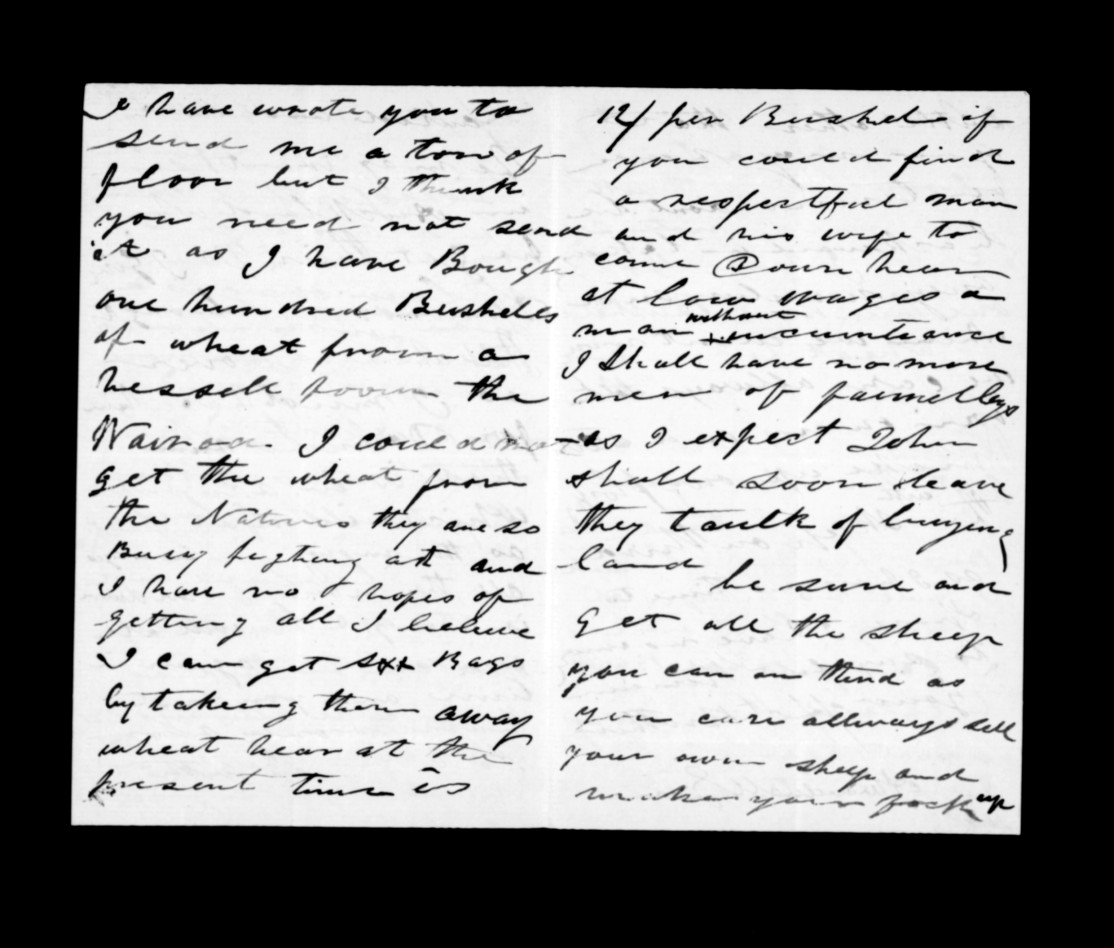 I have wrote you to
send me a ton of
floor but I think
you need not send
it as I have Bough
one hundred Bushells
of wheat from a
vessell from the
Nairoa. I could not
get the wheat from
the Natives they are so
Busey fighting at and
I have no hopes of
getting all I beleive
I can get sxx Bags
by takeing them away
wheat hear at the
present time is
12/ per Bushel if
you could find
a respectful man
and his wife to
come Down hear
at low wages a
man without incumbrance
I Shall have no more
men of famelleys
as I expect John
shall soon leave
they taulk of buying
land
be sure and
get all the sheep
you can on third as
you can allways sell
your own sheep and
make your flock up